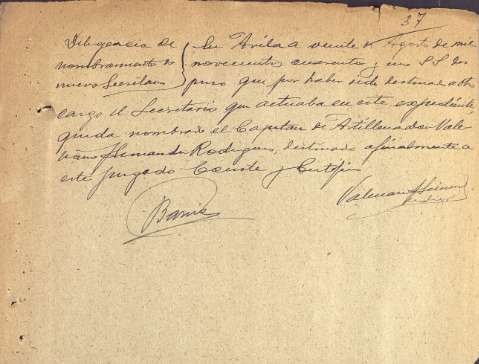 37
Diligencia de En Avila a veinte de Agosto de mil
nombramiento de novecientos cuarenta y uno S.S. dis
nuevo Secretario puso que por haber sido destinado a otro
cargo el Secretario que actuaba en este expediente,
queda nombrado el Capitan de Artilleria don Vale
riano Hernando Rodriguez, destinado oficialmente a
este Juzgado Conste y Certifico
Valeriano Hernando